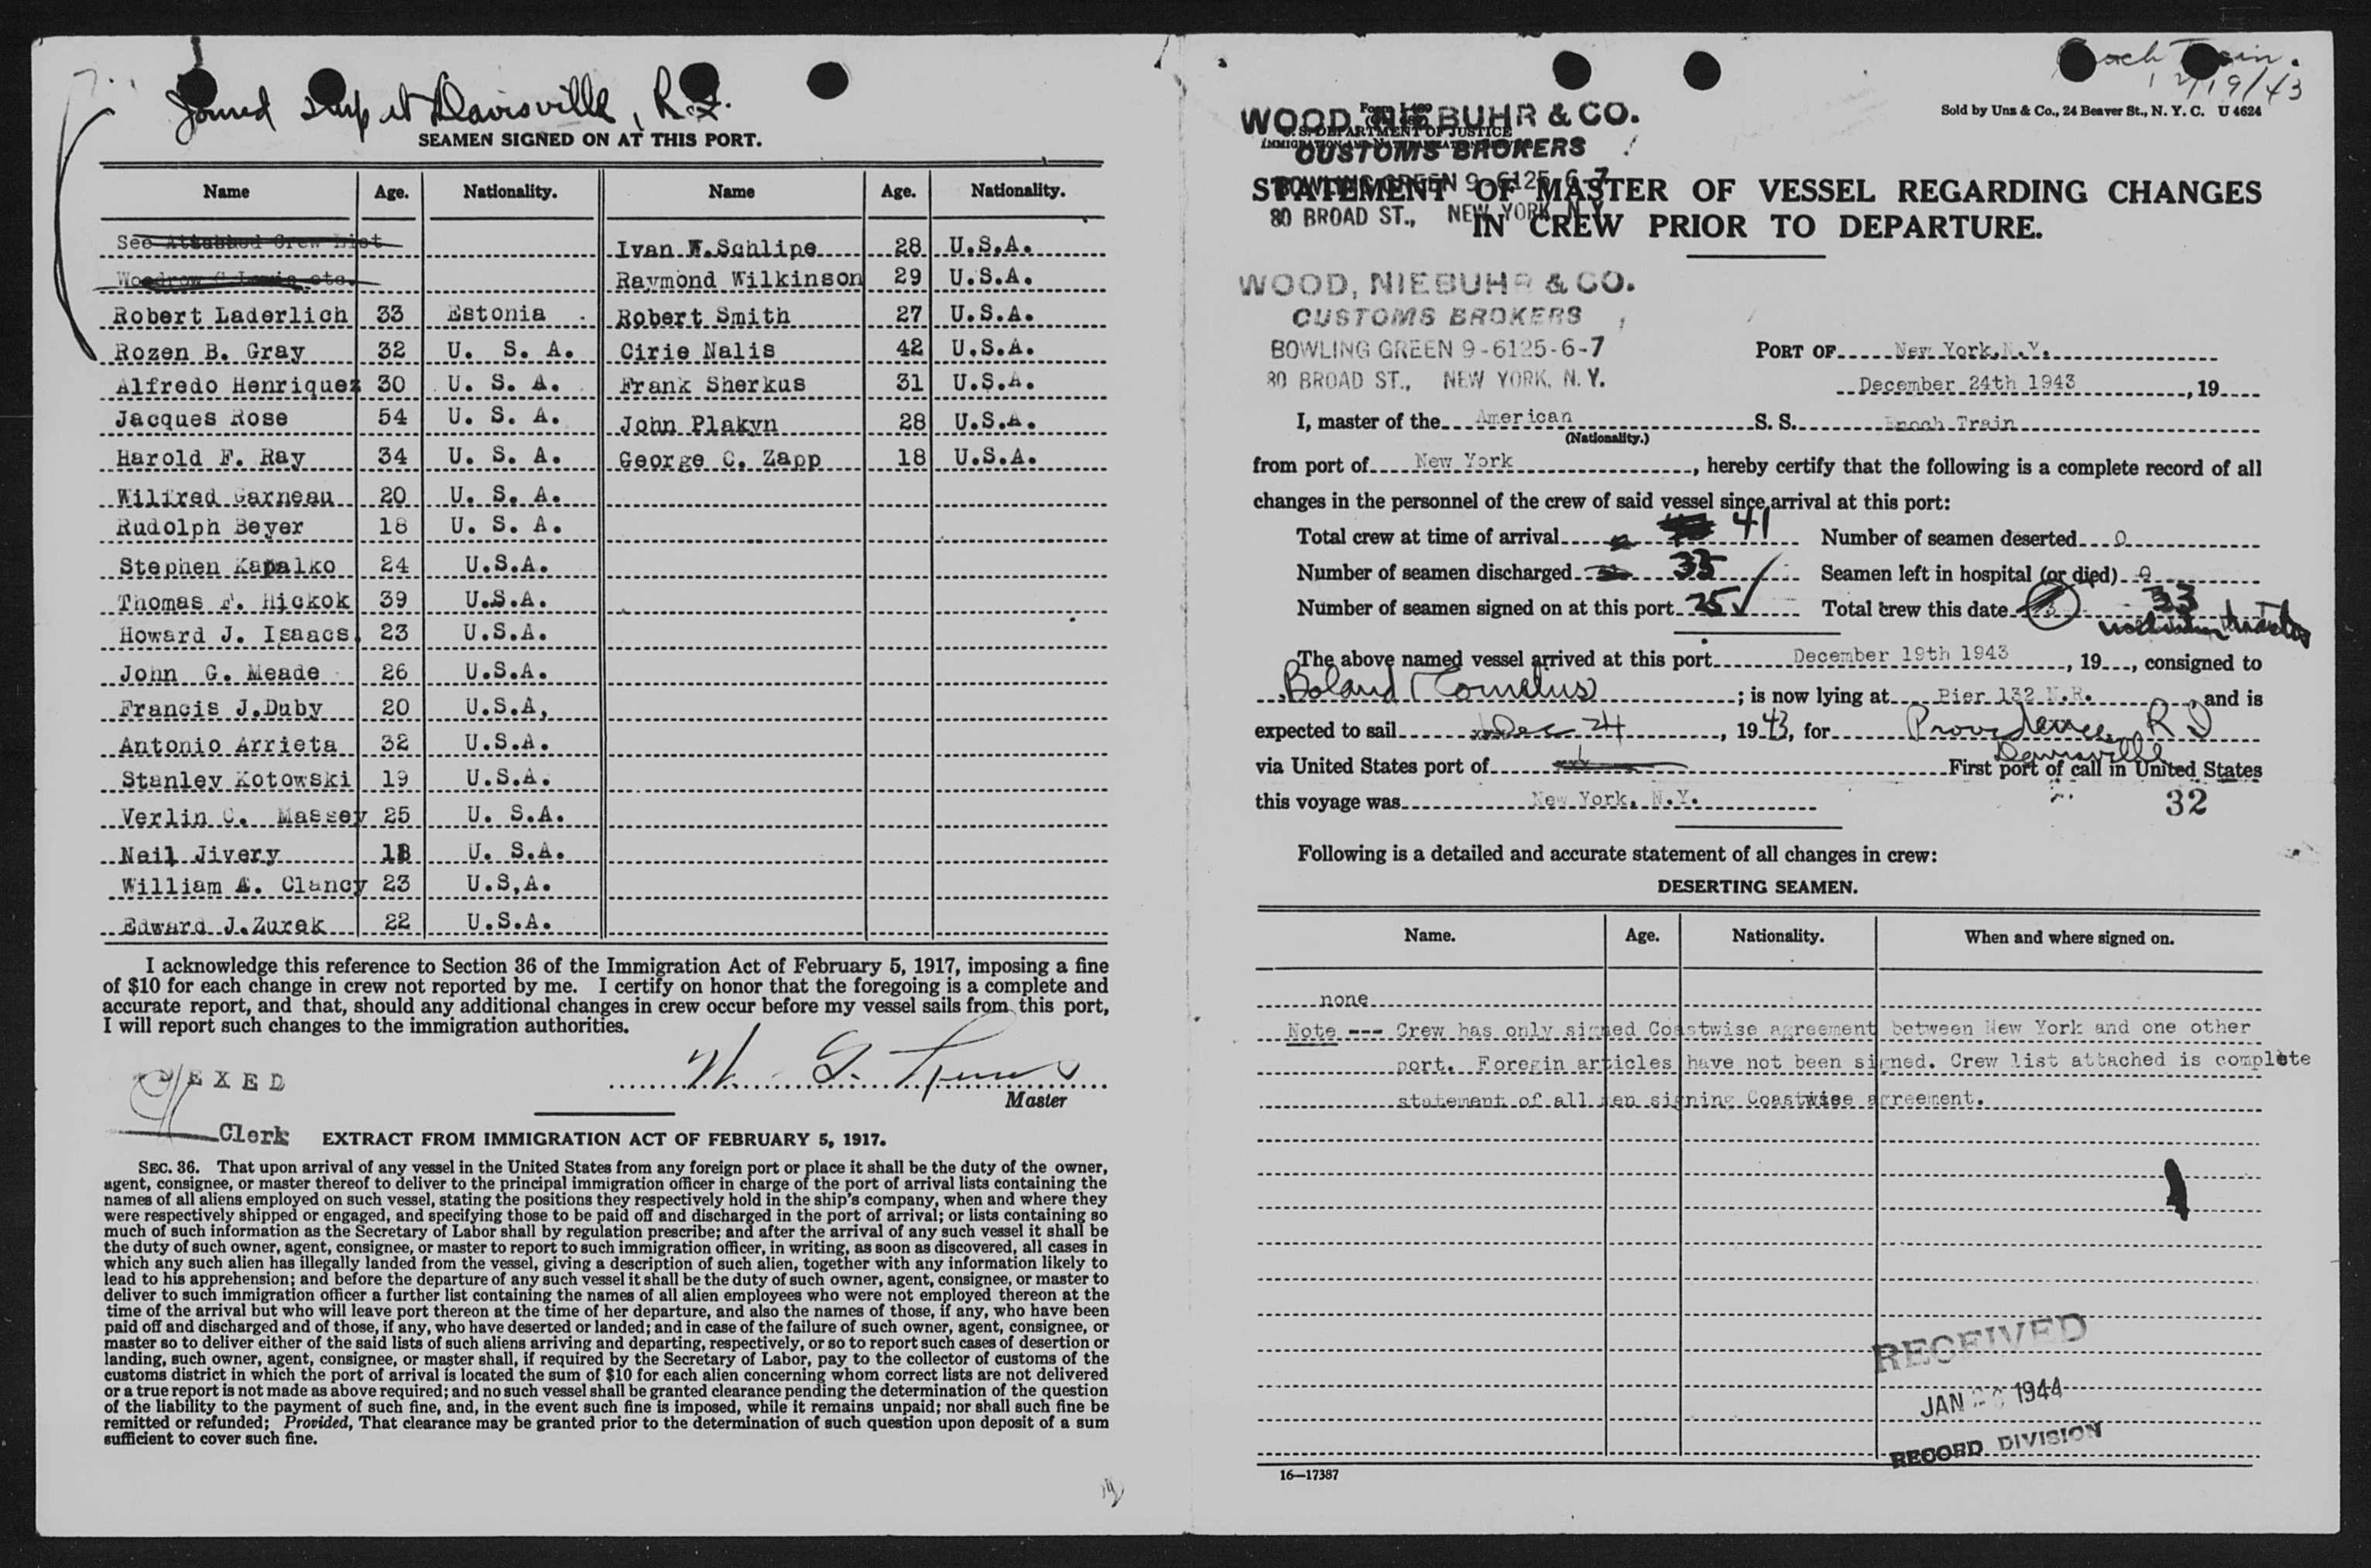 Joined Ship at Davisville, R.I.
SEAMEN SIGNED ON AT THIS PORT.
Name Age. Nationality. Name Age. Nationality.
See Attached Crew List Ivan W. Schlipe 28 U.S.A.
Raymond Wilkinson 29 U.S.A.
Robert Laderlich 33 Estonia Robert Smith 27 U.S.A.
Rozen B. Gray 32 U. S. A. Cirie Nalis 42 U.S.A.
Alfredo Henriquez 30 U. S. A. Frank Sherkus 31 U.S.A.
Jacques Rose 54 U. S. A. John Plakyn 28 U.S.A.
Harold F. Ray 34 U. S. A. George C. Zapp 18 U.S.A.
Wilfred Garneau 20 U. S. A.
Rudolph Beyer 18 U. S. A.
Stephen Kapalko 24 U.S.A.
Thomas F. Hickok 39 U.S.A.
Howard J. Isaacs 23 U.S.A.
John G. Meade 26 U.S.A.
Francis J.Duby 20 U.S.A,
Antonio Arrieta 32 U.S.A.
Stanley Kotowski 19 U.S.A.
Verlin C. Massey 25 U. S.A.
Neil Jivery 18 U. S.A.
William A. Clancy 23 U.S,A.
Edward J.Zurek 22 U.S.A.
I acknowledge this reference to Section 36 of the Immigration Act of February 5, 1917, imposing a fine
of $10 for each change in crew not reported by me. I certify on honor that the foregoing is a complete and
accurate report, and that, should any additional changes in crew occur before my vessel sails from this port,
I will report such changes to the immigration authorities.
Master
Clerk
EXTRACT FROM IMMIGRATION ACT OF FEBRUARY 5, 1917.
SEC. 36. That upon arrival of any vessel in the United States from any foreign port or place it shall be the duty of the owner,
agent, consignee, or master thereof to deliver to the principal immigration officer in charge of the port of arrival lists containing the
names of all aliens employed on such vessel, stating the positions they respectively hold in the ship's company, when and where they
were respectively shipped or engaged, and specifying those to be paid off and discharged in the port of arrival; or lists containing so
much of such information as the Secretary of Labor shall by regulation prescribe; and after the arrival of any such vessel it shall be
the duty of such owner, agent, consignee, or master to report to such immigration officer, in writing, as soon as discovered, all cases in
which any such alien has illegally landed from the vessel, giving a description of such alien, together with any information likely to
lead to his apprehension; and before the departure of any such vessel it shall be the duty of such owner, agent, consignee, or master to
deliver to such immigration officer a further list containing the names of all alien employees who were not employed thereon at the
time of the arrival but who will leave port thereon at the time of her departure, and also the names of those, if any, who have been
paid off and discharged and of those, if any, who have deserted or landed; and in case of the failure of such owner, agent, consignee, or
master so to deliver either of the said lists of such aliens arriving and departing, respectively, or so to report such cases of desertion or
landing, such owner, agent, consignee, or master shall, if required by the Secretary of Labor, pay to the collector of customs of the
customs district in which the port of arrival is located the sum of $10 for each alien concerning whom correct lists are not delivered
or a true report is not made as above required; and no such vessel shall be granted clearance pending the determination of the question
of the liability to the payment of such fine, and, in the event such fine is imposed, while it remains unpaid; nor shall such fine be
remitted or refunded; Provided, That clearance may be granted prior to the determination of such question upon deposit of a sum
sufficient to cover such fine.
12/19/43
Sold by Unz & Co., 24 Beaver St., N. Y. C. U 4624
Form I-489
U. S. DEPARTMENT OF JUSTICE
IMMIGRATION AND NATURALIZATION SERVICE
WOOD, NIEBUHR & CO.
CUSTOMS BROKERS
BOWLING GREEN 9-6125-6-7
80 BROAD ST., NEW YORK, N.Y.
STATEMENT OF MASTER OF VESSEL REGARDING CHANGES
IN CREW PRIOR TO DEPARTURE.
WOOD, NIEBUHR & CO.
CUSTOMS BROKERS
BOWLING GREEN 9-6125-6-7
80 BROAD ST., NEW YORK, N.Y.
PORT OF New York, N.Y.
December 24th 1943, 19
I, master of the American S. S. Enoch Train
(Nationality.)
from port of New York, hereby certify that the following is a complete record of all
changes in the personnel of the crew of said vessel since arrival at this port:
Total crew at time of arrival 41 Number of seamen deserted 0
Number of seamen discharged 33 Seamen left in hospital (or died) 0
Number of seamen signed on at this port 25 Total crew this date 33
The above named vessel arrived at this port December 19th 1943, 19, consigned to
Boland Cornelius; is now lying at Pier 132 N.R., and is
expected to sail Dec 24, 1943, for Providence, R I
Davisville
via United States port of First port of call in United States
this voyage was New York, N.Y.
32
Following is a detailed and accurate statement of all changes in crew:
DESERTING SEAMEN.
Name. Age. Nationality. When and where signed on.
none
Note --- Crew has only signed Coastwise agreement between New York and one other
port. Foregin articles have not been signed. Crew list attached is complete
statement of all men signing Coastwise agreement.
RECEIVED
JAN 1944
RECORD DIVISION
16—17387